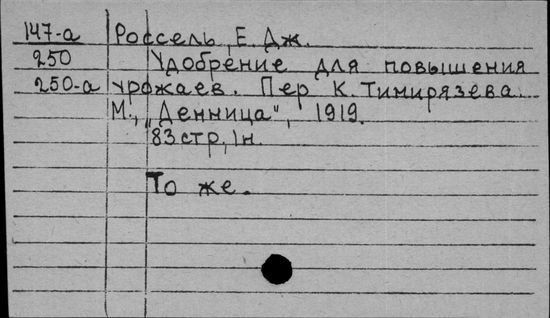 147-а Россель, Е. Дж.
250 Удобрение для повышения
250-а урожаев. Пер К. Тимирязева.
М., „Денница", 1919.
83 стр, 1н.
То же.